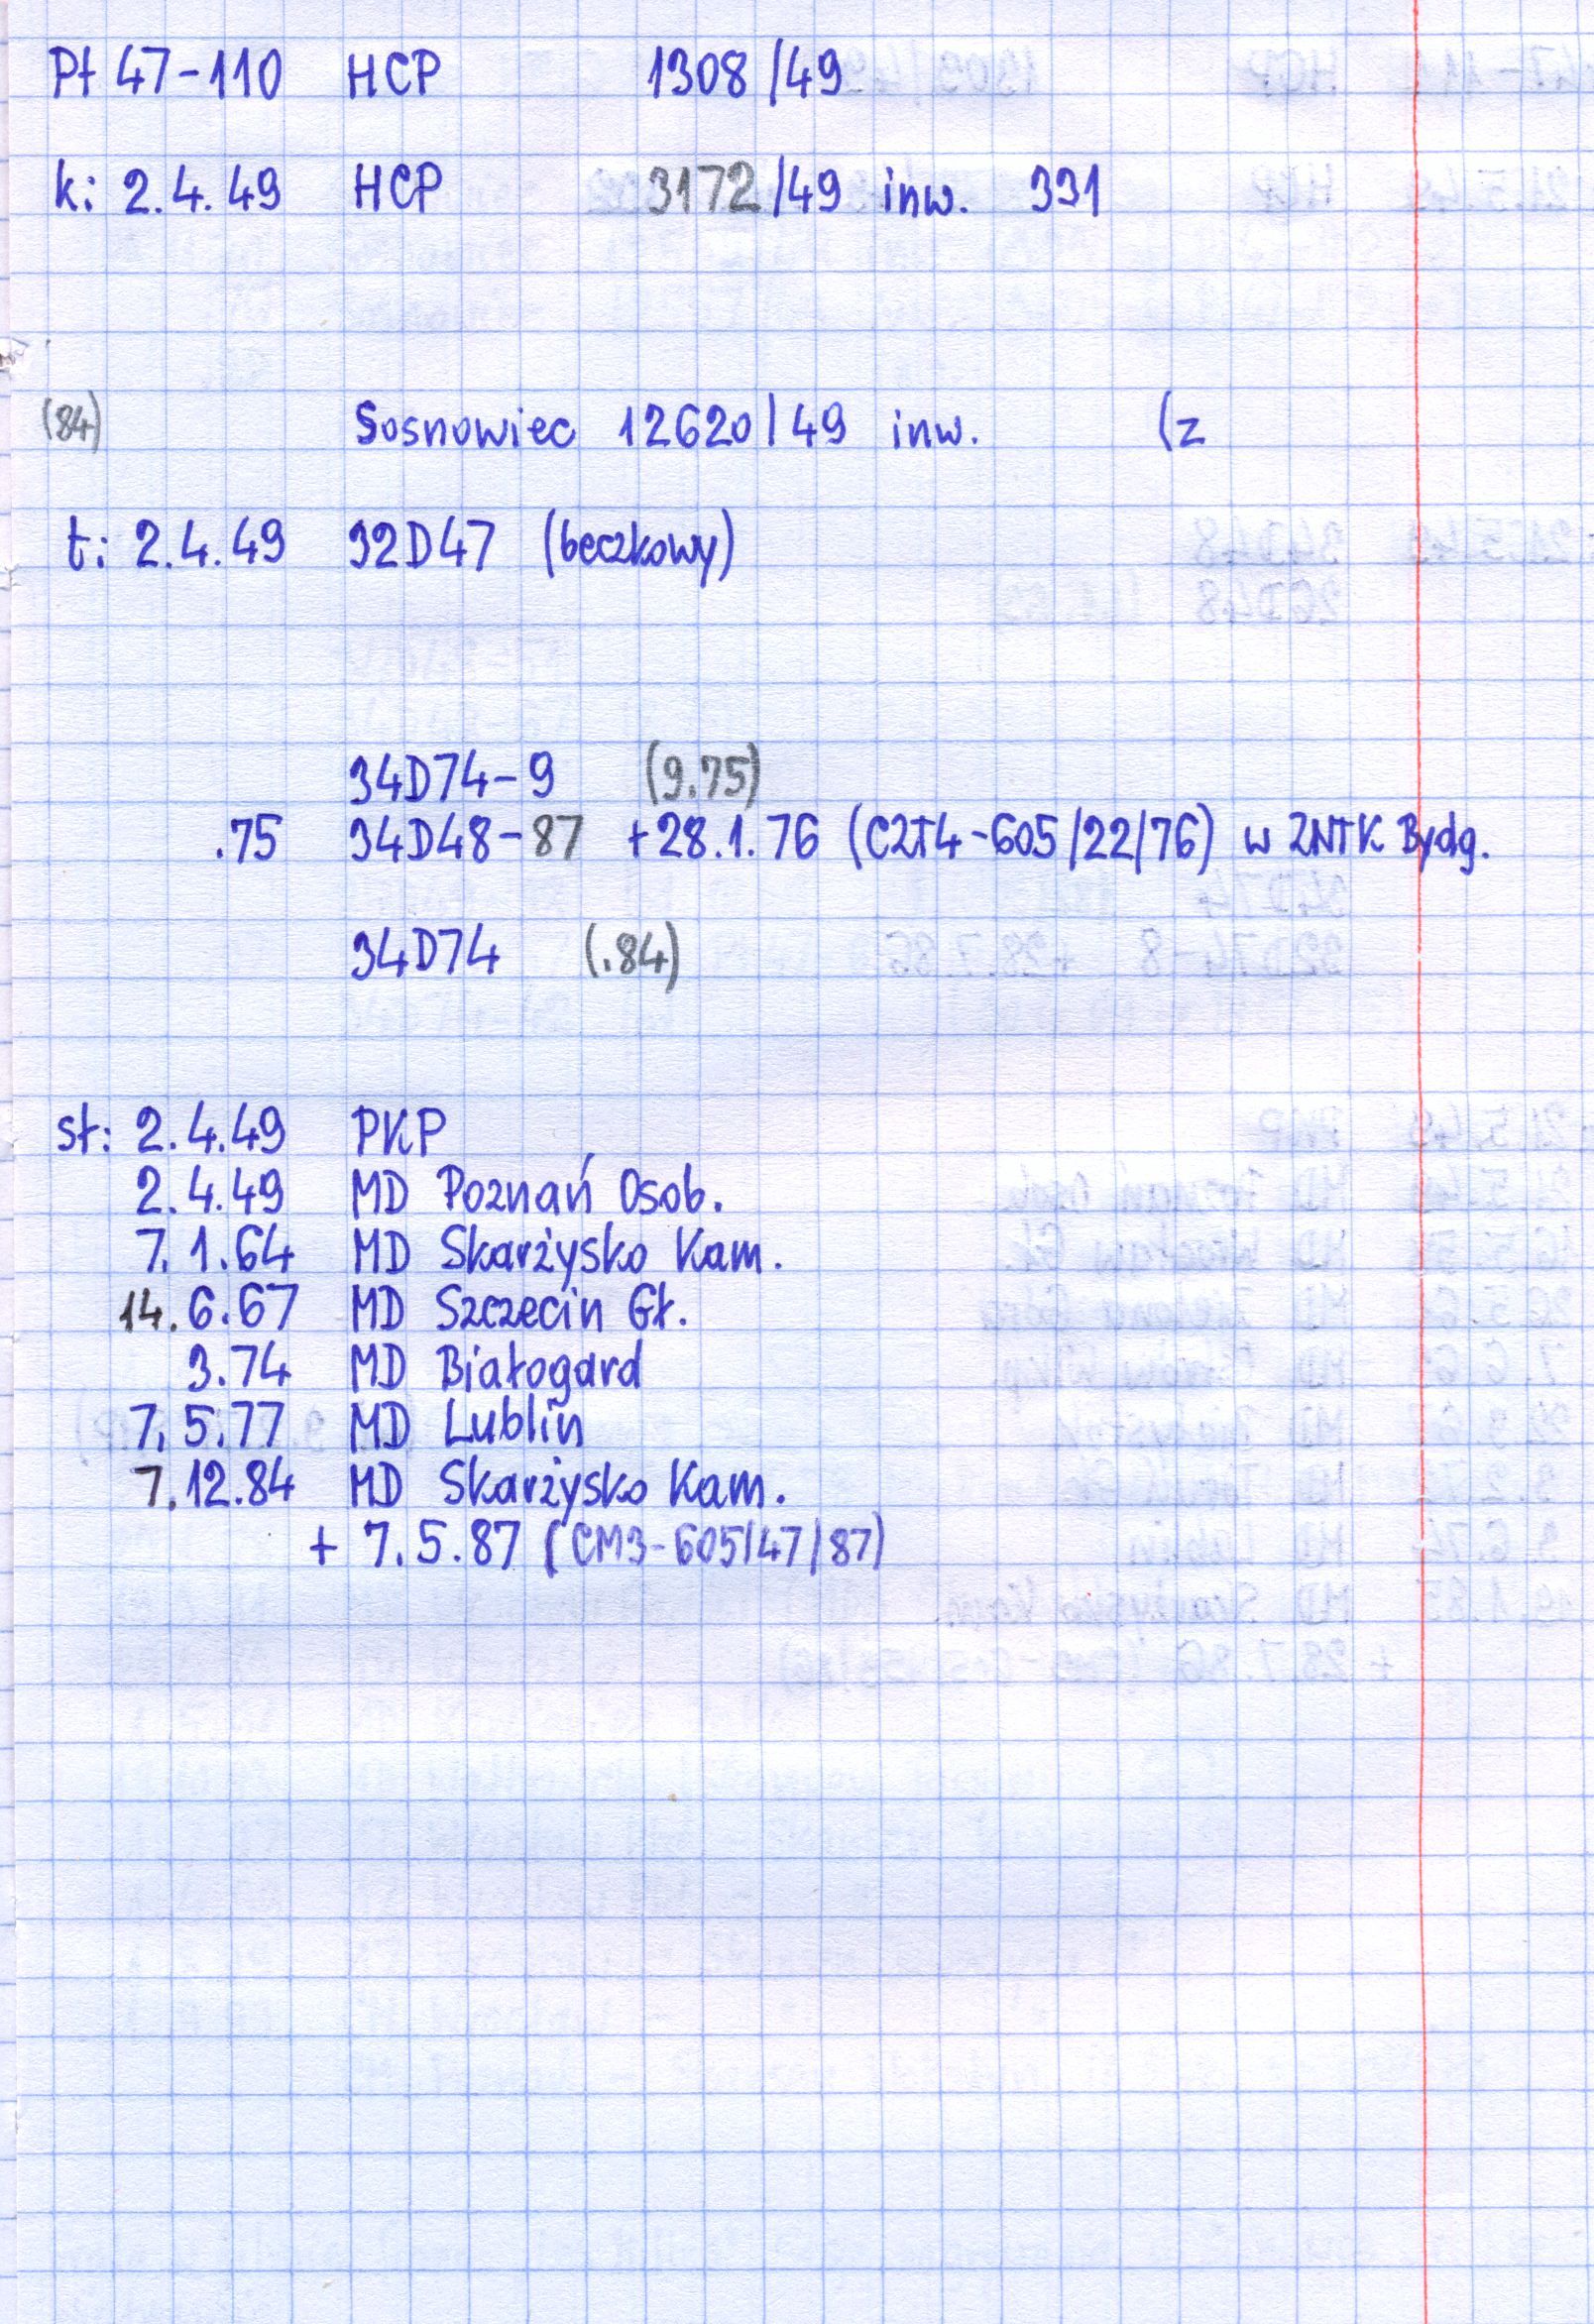 Pt 47-110 HCP 1308/49
k: 2.4.49 HCP 3172/49 inw. 331
(84) Sosnowiec 12620/49 inw. (z
t: 2.4.49 32D47 (beczkowy)
34D74-9 (9.75)
.75 34D48-87 +28.1.76 (CZT4-605/22/76) w ZNTK Bydg.
34D74 (.84)
st: 2.4.49 PKP
2.4.49 MD Poznań Osob.
7.1.64 MD Skarżysko Kam.
14.6.67 MD Szczecin Gł.
3.74 MD Białogard
7.5.77 MD Lublin
7.12.84 MD Skarżysko Kam.
+ 7.5.87 (CM3-605/47/87)